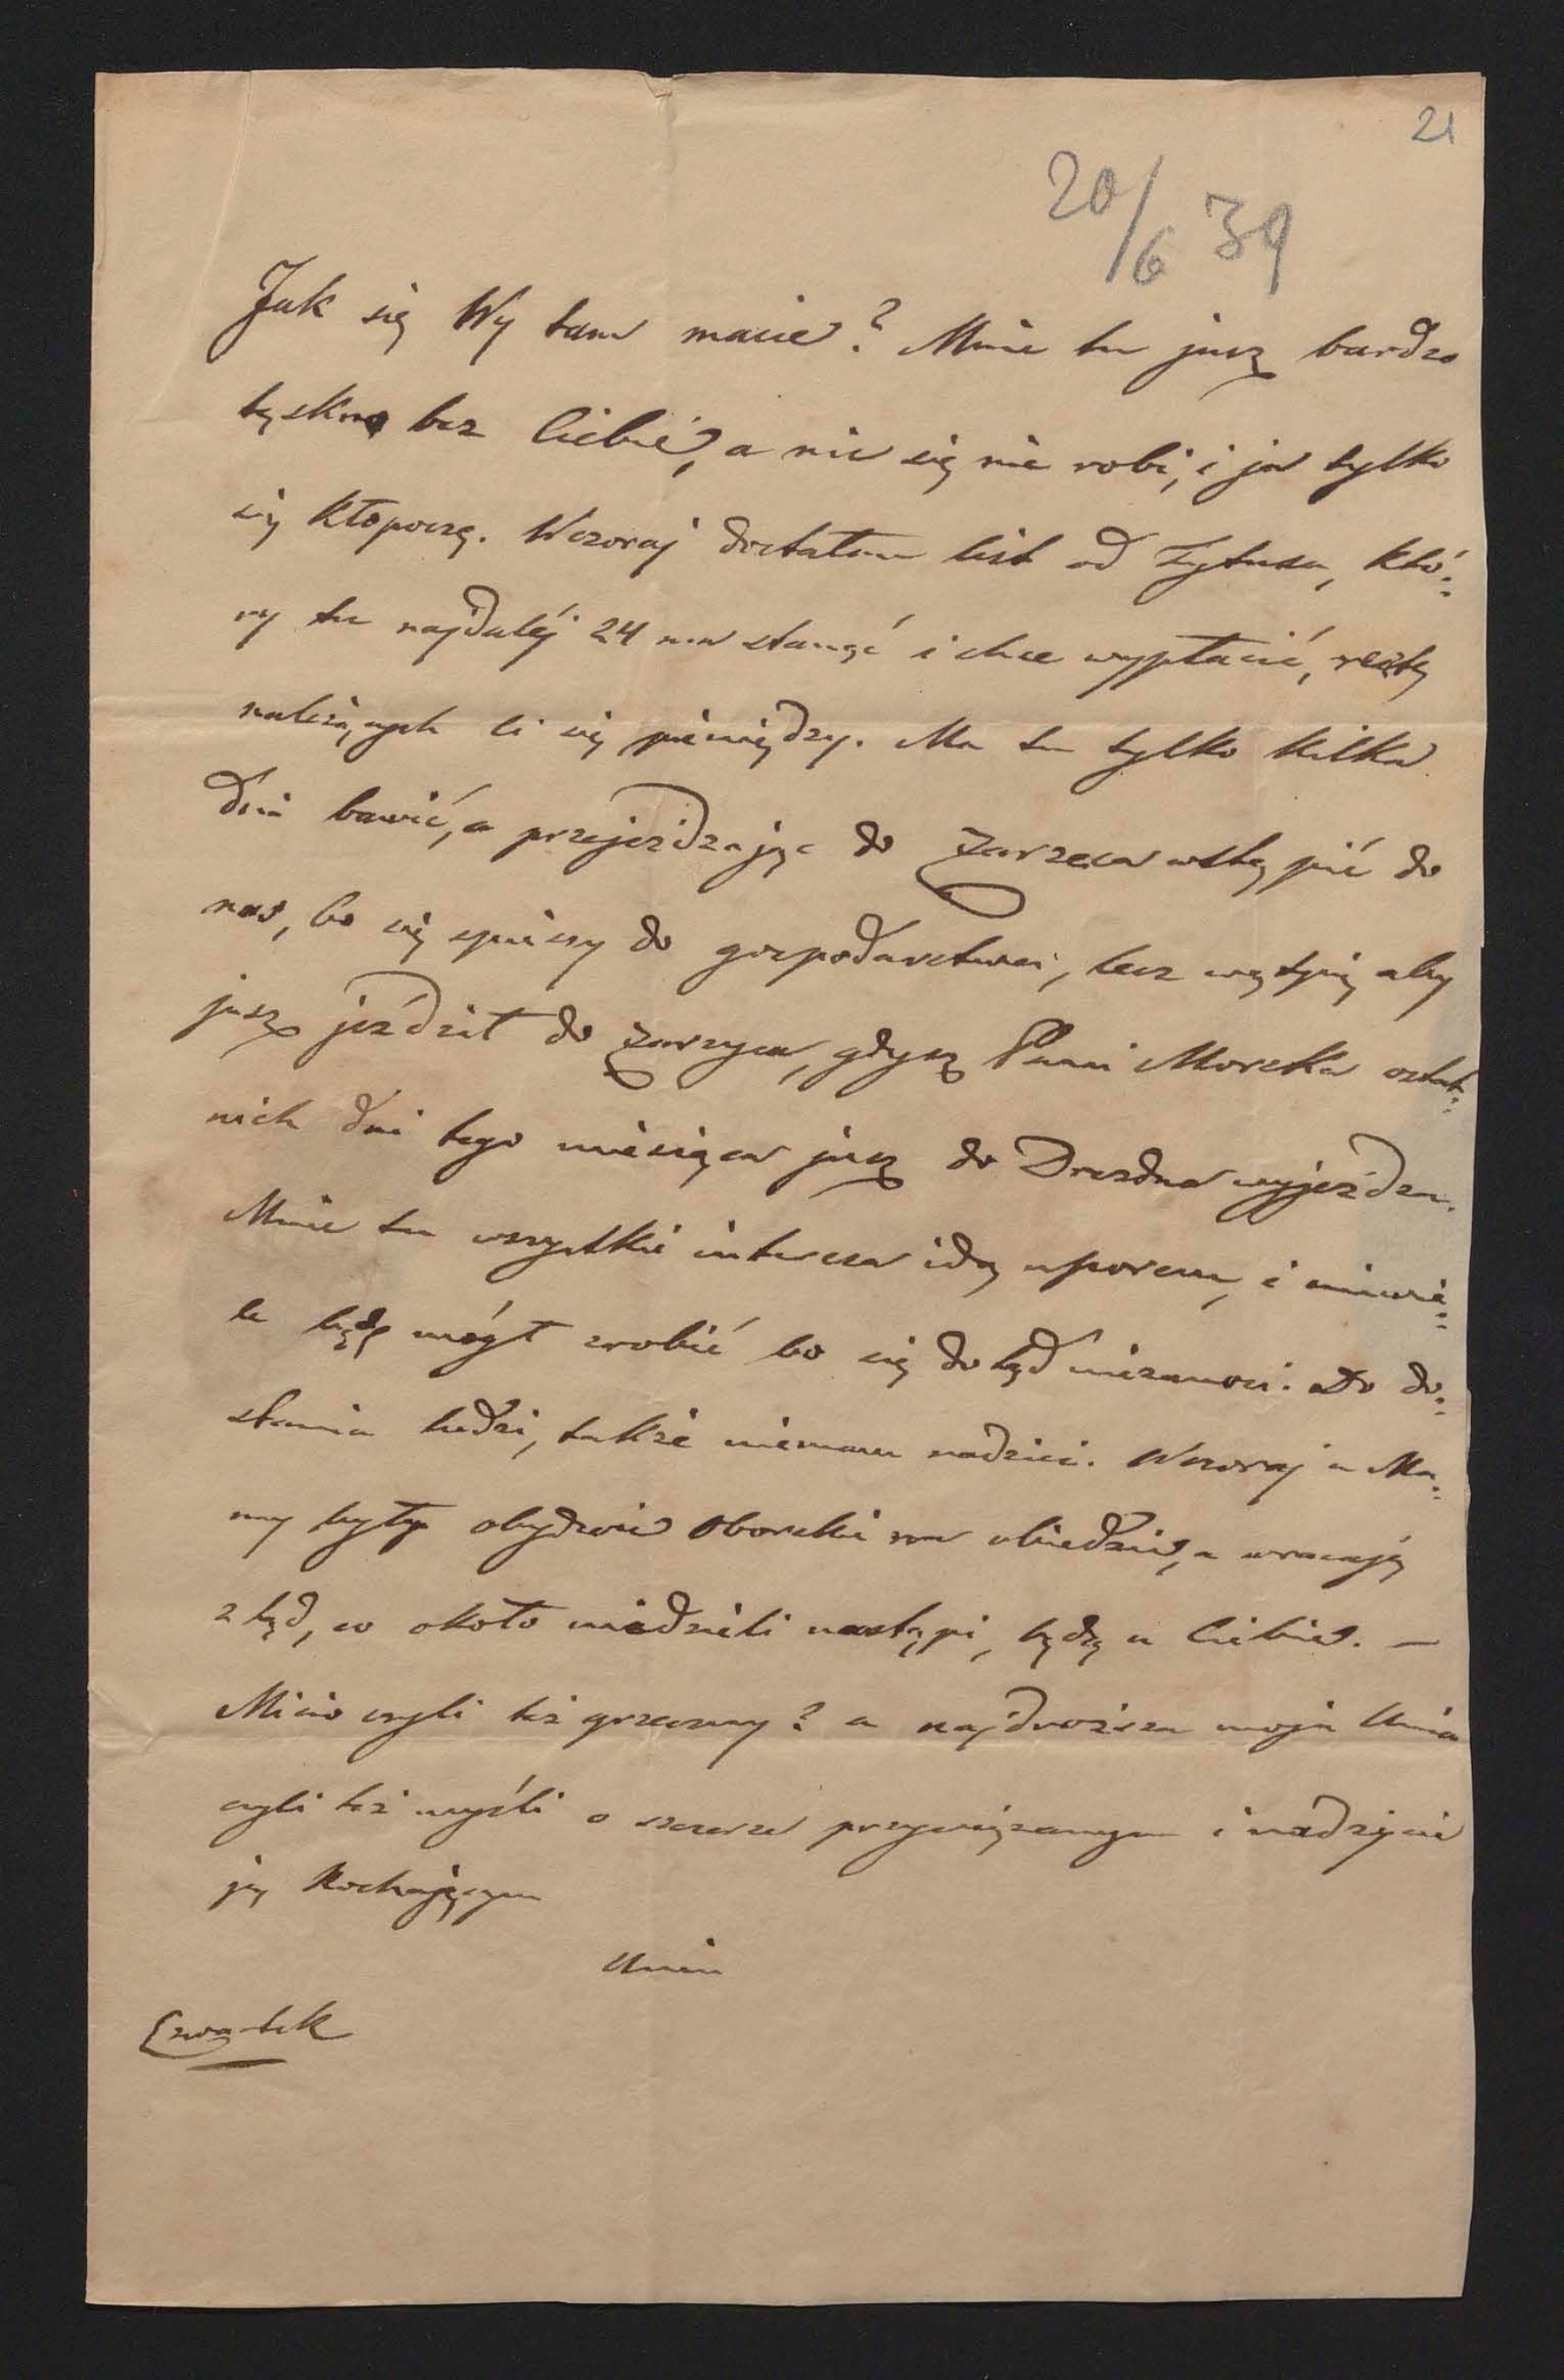 21
20/6 39
Jak się Wy tam macie? Mnie tu jusz bardzo
tęskno bez Ciebie, a nic się nie robi, i ja tylko
się kłopoczę. Wczoraj dostałem list od Tytusa, któ:
ry tu najdaléj 24 ma stanąć i chce wypłacić, resztę
należących ci się pieniędzy. Ma tu tylko kilka
dni bawić, a przejeżdzając do Zarzeca wstąpić do
nas, bo się spieszy do gospodarstwa, lecz wątpię aby
jusz jeździł do Zarzyca, gdysz Pani Morska ostat:
nich dni tego miesiąca jusz do Drezdna wyjeżdza.
Mnie tu wszystkie interesa idą uporem, i niewie:
le będę mógł zrobić bo się dotąd niezanosi. Do do:
stania ludzi, także niemam nadziei. Wczoraj u Ma:
my były obydwie Oborskie na obiedzie, a wracają
ztąd, co około niedzieli nastąpi, będą u Ciebie. —
Micio czyli też grzeczny? a najdroższa moja Unia
czyli też myśli o szczerze przywiązanym i nadzycie
ją kochającym
Unin
Czwartek